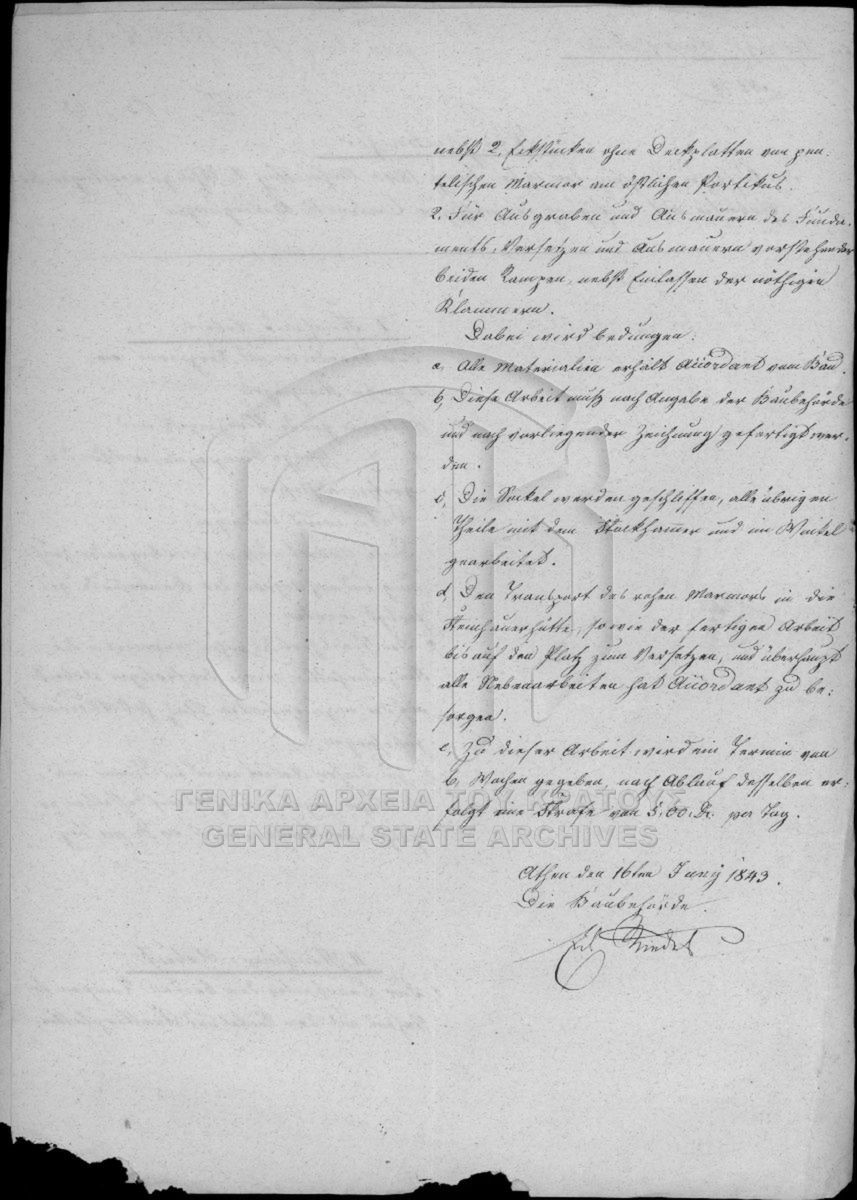 nebst 2. Eckstücken ohne Deckplatten von pen-
telischen Marmor am östlichen Portikus.
2. Für Ausgraben und Ausmauern des Funda-
ments, Versetzen und Ausmauern vorstehender
beiden Rampen, nebst Einlassen der nöthigen
Klammern.
Dabei wird bedungen:
a, Alle Materialien erhält Accordant vom Bau.
b, Diese Arbeit muß nach Angabe der Baubehörde
und nach vorliegender Zeichnung gefertigt wer-
den.
c, Die Sockel werden geschliffen, alle übrigen
Theile mit dem Stockhamer und im
gearbeitet.
d, Den Transport des rohen Marmors in die
Steinhauerhütte, sowie der fertigen Arbeit
bis auf den Platz zum Versetzen, und überhaupt
alle Nebenarbeiten hat Accordant zu be-
sorgen.
e, Zu dieser Arbeit wird ein Termin von
6, Wochen gegeben, nach Ablauf desselben er-
folgt eine Strafe von 5,00 Dr. per Tag.
ΓΕΝΙΚΑ ΑΡΧΕΙΑ ΤΟΥ ΚΡΑΤΟΥΣ
GENERAL STATE ARCHIVES
Athen den 16ten Juny 1843.
Die Baubehörde.
Ed. Riedel